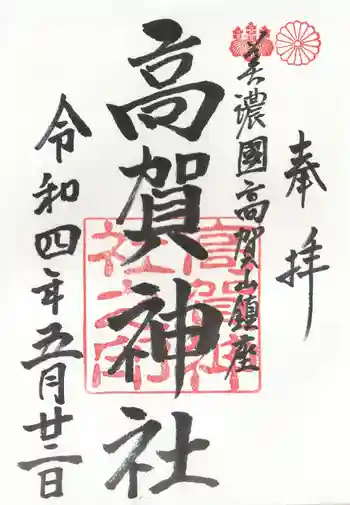 奉拝
美濃國高賀山鎮座
高賀神社
令和四年五月廿二日